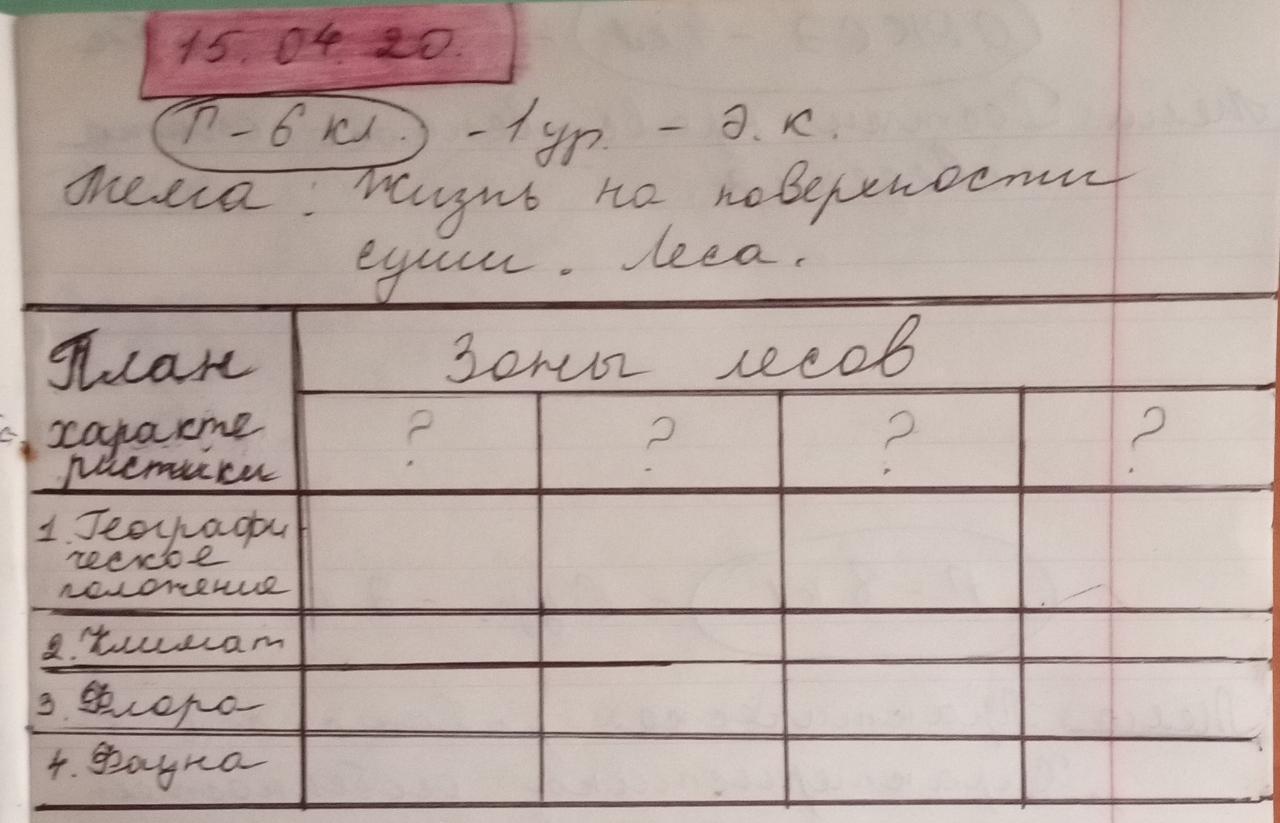 15. 04. 20.
Г - 6 кл. - 1 ур. - д. к.
Тема : Жизнь на поверхности
суши. Леса.
План
характе
ристики
Зоны лесов
? ? ? ?
1. Географи
ческое
положение
2. Климат
3. Флора
4. Фауна